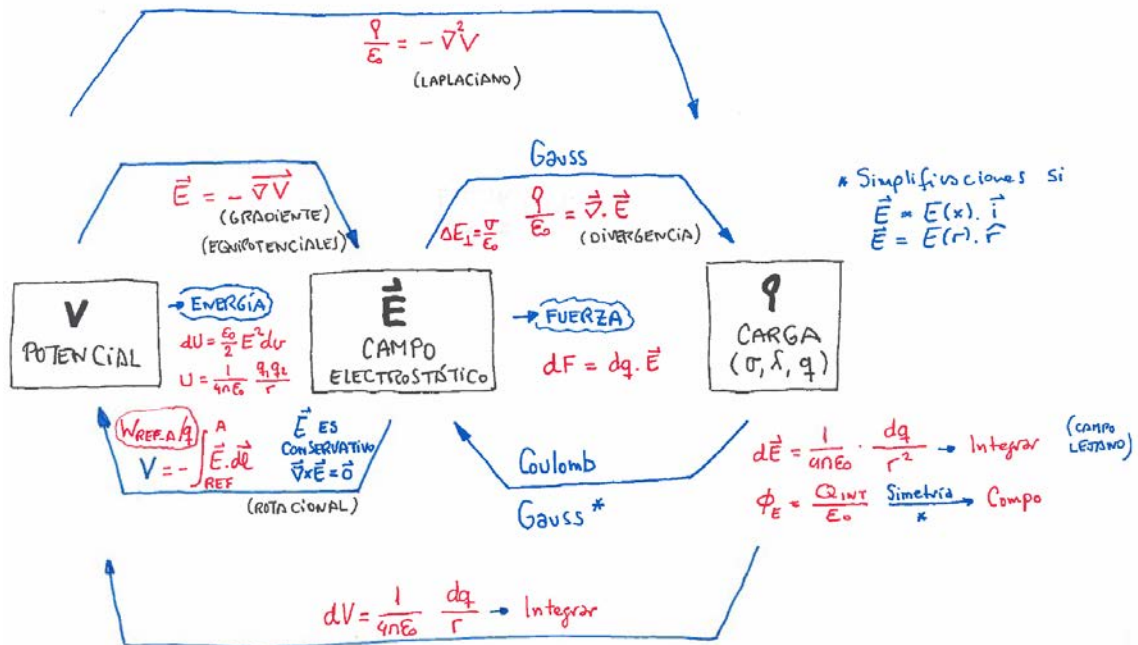 ρ/ε₀ = - ∇²V
(LAPLACIANO)
Gauss
E⃗ = - ∇V
(GRADIENTE)
(EQUIPOTENCIALES)
ΔE⊥ = σ/ε₀
ρ/ε₀ = ∇⃗. E⃗
(DIVERGENCIA)
* Simplificaciones si
E⃗ = E(x). i⃗
E⃗ = E(r). r̂
V
POTENCIAL
ENERGÍA
dU = ε₀/2 E² dv
U = 1/4πε₀ q₁q₂/r
E⃗
CAMPO
ELECTROSTÁTICO
FUERZA
dF = dq. E⃗
ρ
CARGA
(σ, λ, q)
W REF→A/q
V = - ∫ REF A E⃗. dl⃗
E⃗ ES
CONSERVATIVO
∇⃗×E⃗ = 0⃗
(ROTACIONAL)
Coulomb
Gauss *
dE⃗ = 1/4πε₀ · dq/r² → Integrar
(CAMPO
LEJANO)
ϕE = Q INT/ε₀ Simetría * → Campo
dV = 1/4πε₀ dq/r → Integrar